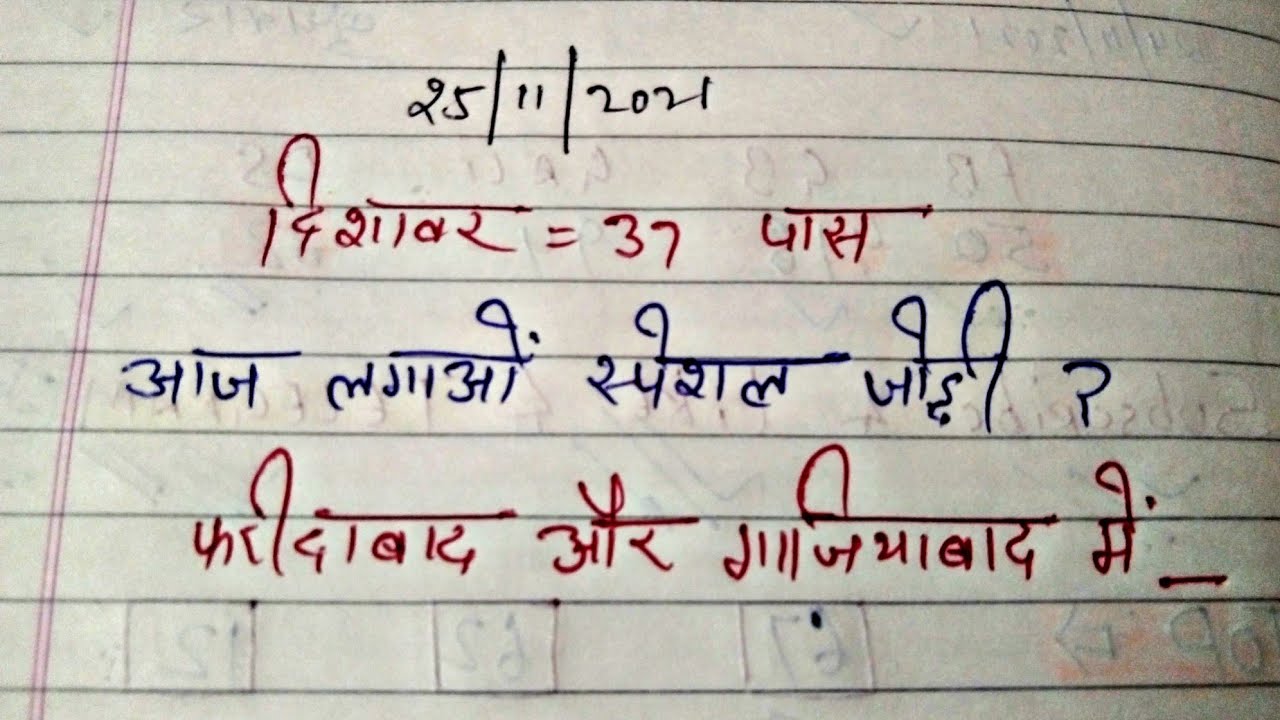 25/11/2021
दिशावर = 37 पास
आज लगाओं स्पेशल जोड़ी ?
फरीदाबाद और गाजियाबाद में _